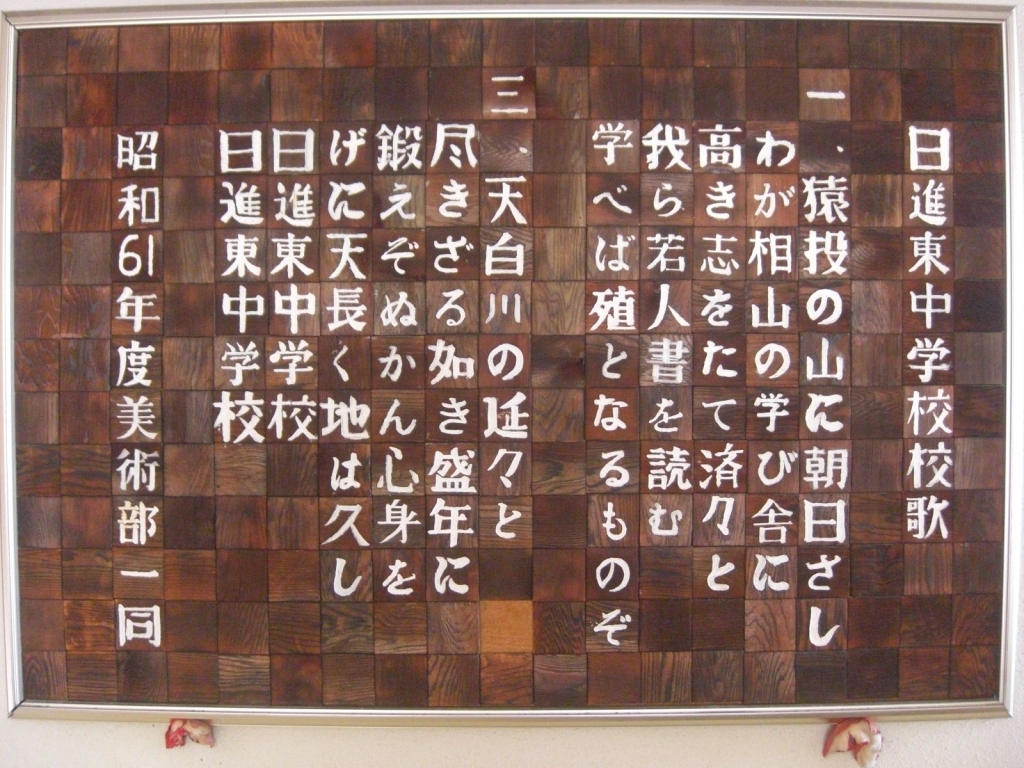 日進東中学校校歌
一、猿投の山に朝日さし
わが相山の学び舎に
高き志をたて済々と
我ら若人書を読む
学べば殖となるものぞ
三、天白川の延々と
尽きざる如き盛年に
鍛えぞぬかん心身を
げに天長く地は久し
日進東中学校
日進東中学校
昭和61年度美術部一同